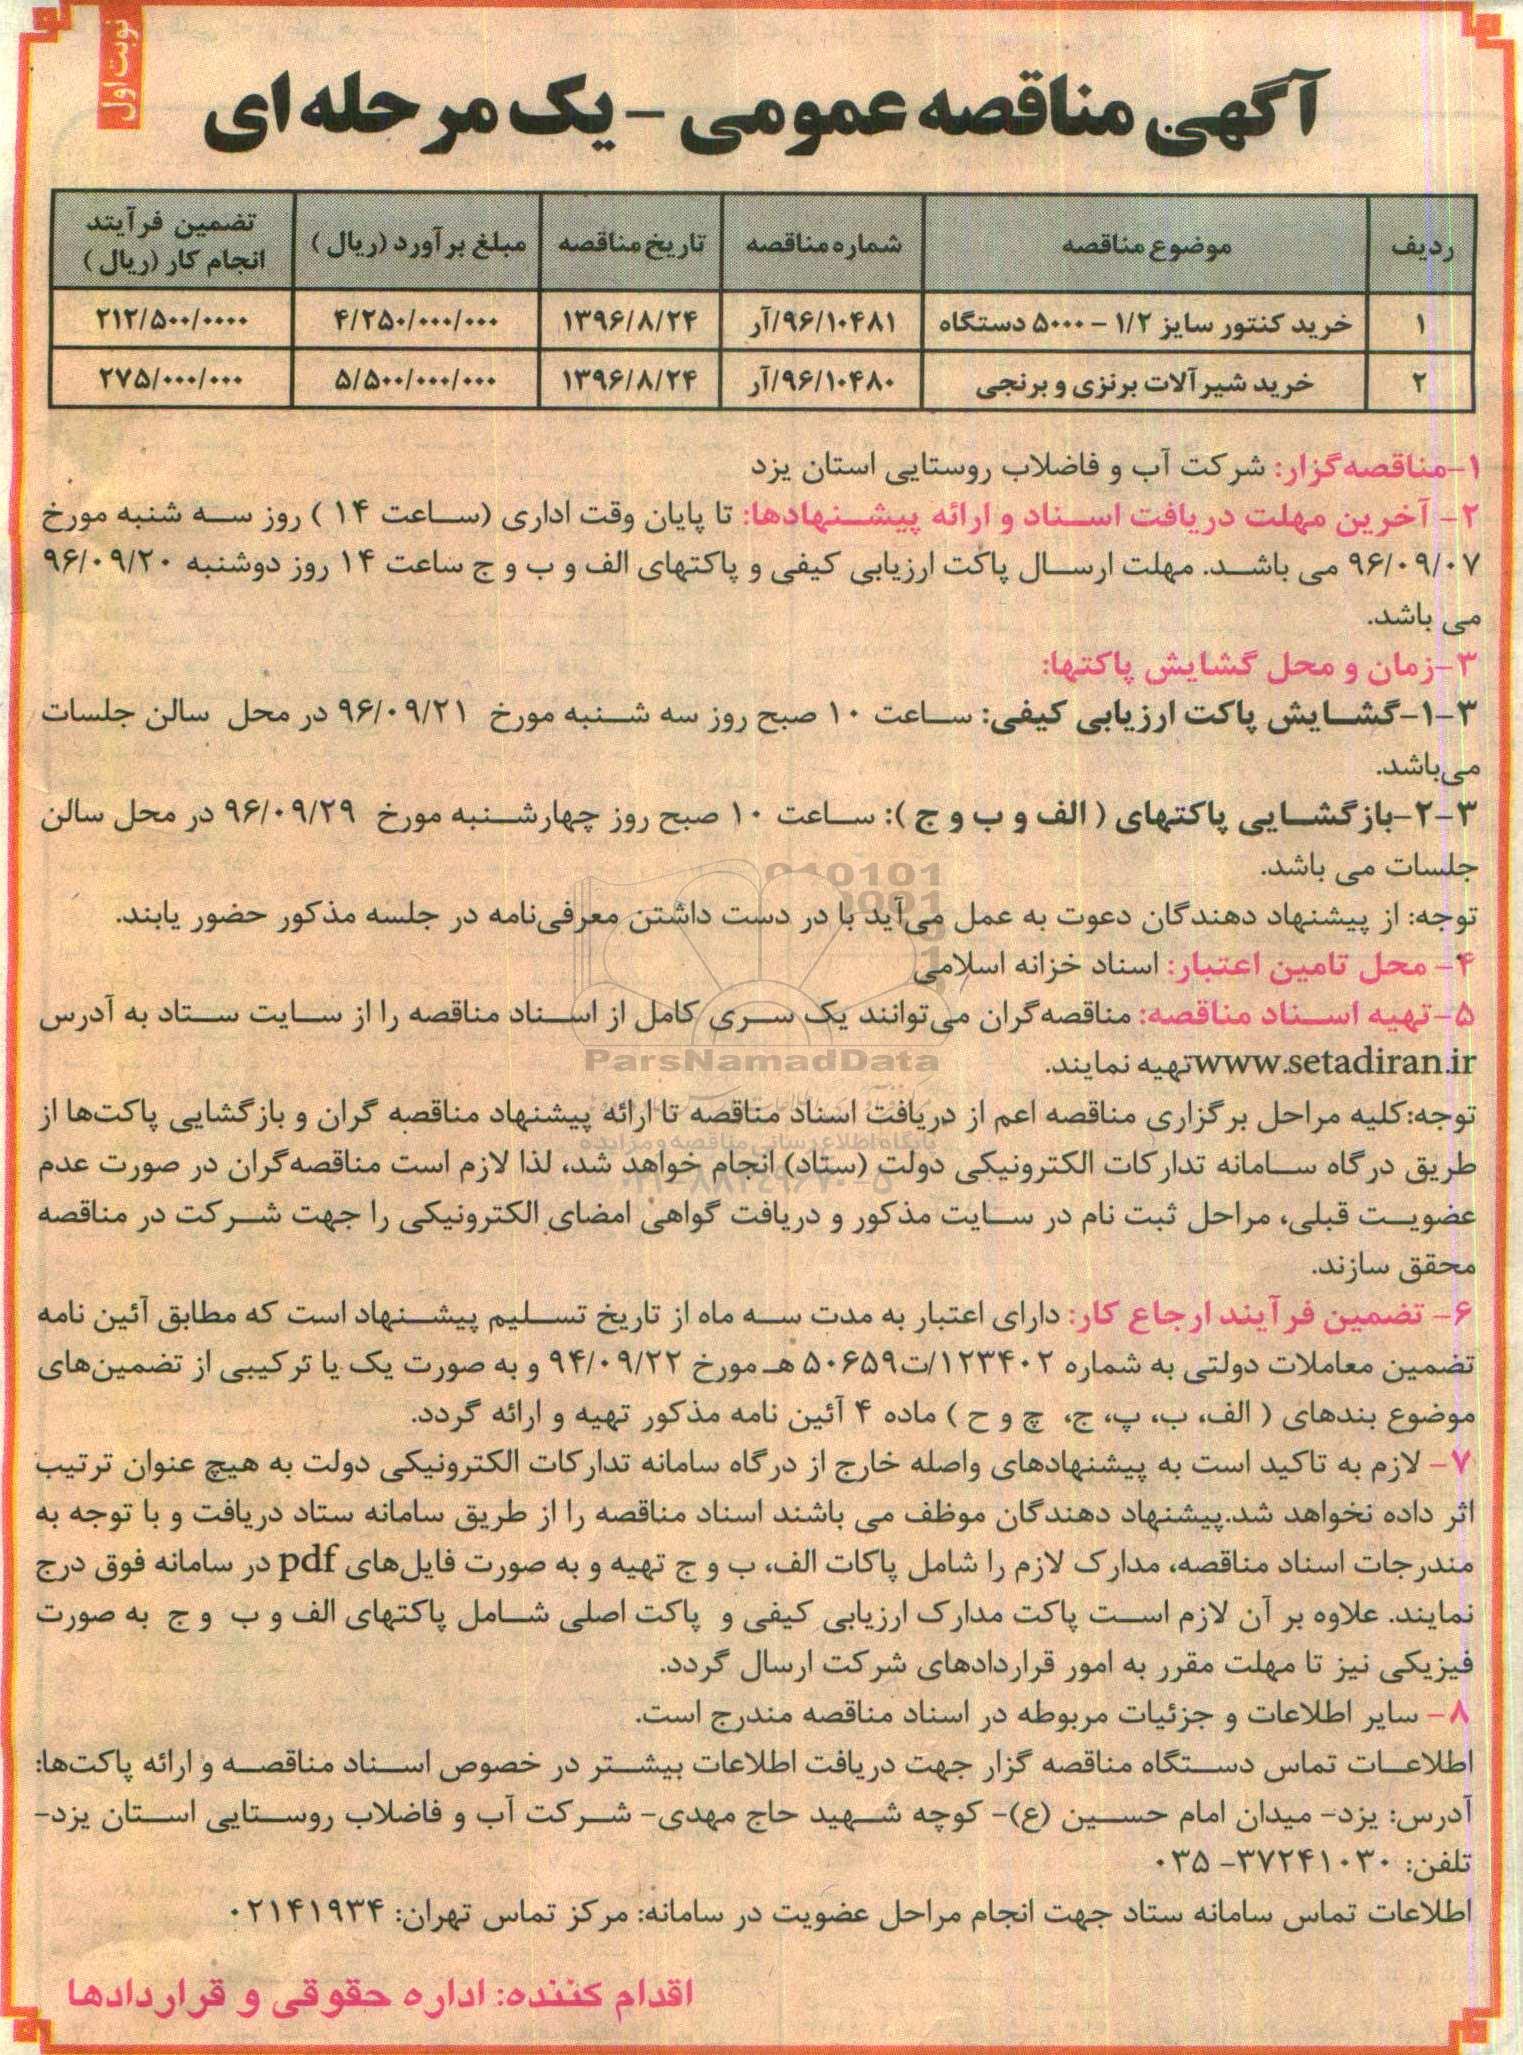 نوبت اول
آگهی مناقصه عمومی - یک مرحله ای
ردیف | موضوع مناقصه | شماره مناقصه | تاریخ مناقصه | مبلغ برآورد (ریال) | تضمین فرآیند انجام کار (ریال)
۱ | خرید کنتور سایز ۱/۲ - ۵۰۰۰ دستگاه | ۹۶/۱۰۴۸۱/آر | ۱۳۹۶/۸/۲۴ | ۴/۲۵۰/۰۰۰/۰۰۰ | ۲۱۲/۵۰۰/۰۰۰۰
۲ | خرید شیرآلات برنزی و برنجی | ۹۶/۱۰۴۸۰/آر | ۱۳۹۶/۸/۲۴ | ۵/۵۰۰/۰۰۰/۰۰۰ | ۲۷۵/۰۰۰/۰۰۰
۱-مناقصه‌گزار: شرکت آب و فاضلاب روستایی استان یزد
۲- آخرین مهلت دریافت اسناد و ارائه پیشنهادها: تا پایان وقت اداری (ساعت ۱۴ ) روز سه شنبه مورخ
۹۶/۰۹/۰۷ می باشد. مهلت ارسال پاکت ارزیابی کیفی و پاکتهای الف و ب و ج ساعت ۱۴ روز دوشنبه ۹۶/۰۹/۲۰
می باشد.
۳-زمان و محل گشایش پاکتها:
۳-۱-گشایش پاکت ارزیابی کیفی: ساعت ۱۰ صبح روز سه شنبه مورخ ۹۶/۰۹/۲۱ در محل سالن جلسات
می‌باشد.
۳-۲-بازگشایی پاکتهای ( الف و ب و ج ): ساعت ۱۰ صبح روز چهارشنبه مورخ ۹۶/۰۹/۲۹ در محل سالن
جلسات می باشد.
توجه: از پیشنهاد دهندگان دعوت به عمل می‌آید با در دست داشتن معرفی‌نامه در جلسه مذکور حضور یابند.
۴- محل تامین اعتبار: اسناد خزانه اسلامی
۵-تهیه اسناد مناقصه: مناقصه‌گران می‌توانند یک سری کامل از اسناد مناقصه را از سایت ستاد به آدرس
www.setadiran.ir تهیه نمایند.
توجه:کلیه مراحل برگزاری مناقصه اعم از دریافت اسناد مناقصه تا ارائه پیشنهاد مناقصه گران و بازگشایی پاکت‌ها از
طریق درگاه سامانه تدارکات الکترونیکی دولت (ستاد) انجام خواهد شد، لذا لازم است مناقصه‌گران در صورت عدم
عضویت قبلی، مراحل ثبت نام در سایت مذکور و دریافت گواهی امضای الکترونیکی را جهت شرکت در مناقصه
محقق سازند.
۶- تضمین فرآیند ارجاع کار: دارای اعتبار به مدت سه ماه از تاریخ تسلیم پیشنهاد است که مطابق آئین نامه
تضمین معاملات دولتی به شماره ۱۲۳۴۰۲/ت۵۰۶۵۹ هـ مورخ ۹۴/۰۹/۲۲ و به صورت یک یا ترکیبی از تضمین‌های
موضوع بندهای ( الف، ب، پ، ج، چ و ح ) ماده ۴ آئین نامه مذکور تهیه و ارائه گردد.
۷- لازم به تاکید است به پیشنهادهای واصله خارج از درگاه سامانه تدارکات الکترونیکی دولت به هیچ عنوان ترتیب
اثر داده نخواهد شد.پیشنهاد دهندگان موظف می باشند اسناد مناقصه را از طریق سامانه ستاد دریافت و با توجه به
مندرجات اسناد مناقصه، مدارک لازم را شامل پاکات الف، ب و ج تهیه و به صورت فایل‌های pdf در سامانه فوق درج
نمایند. علاوه بر آن لازم است پاکت مدارک ارزیابی کیفی و پاکت اصلی شامل پاکتهای الف و ب و ج به صورت
فیزیکی نیز تا مهلت مقرر به امور قراردادهای شرکت ارسال گردد.
۸- سایر اطلاعات و جزئیات مربوطه در اسناد مناقصه مندرج است.
اطلاعات تماس دستگاه مناقصه گزار جهت دریافت اطلاعات بیشتر در خصوص اسناد مناقصه و ارائه پاکت‌ها:
آدرس: یزد- میدان امام حسین (ع)- کوچه شهید حاج مهدی- شرکت آب و فاضلاب روستایی استان یزد-
تلفن: ۳۷۲۴۱۰۳۰- ۰۳۵
اطلاعات تماس سامانه ستاد جهت انجام مراحل عضویت در سامانه: مرکز تماس تهران: ۰۲۱۴۱۹۳۴
اقدام کننده: اداره حقوقی و قراردادها
ParsNamadData
پایگاه اطلاع رسانی مناقصه و مزایده